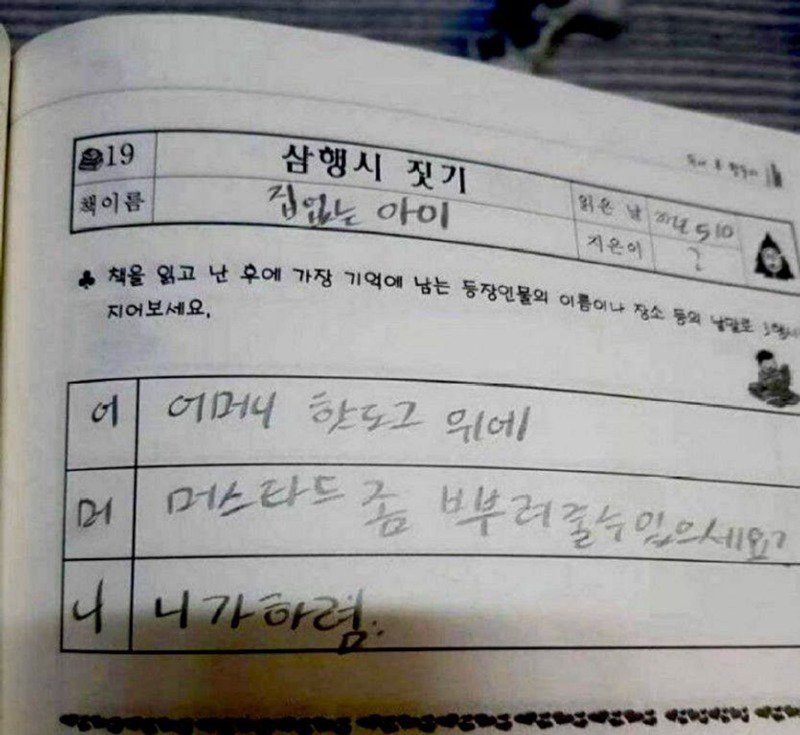 19 삼행시 짓기
책이름 집없는 아이
읽은 날 5 10
지은이 ?
♣ 책을 읽고 난 후에 가장 기억에 남는 등장인물의 이름이나 장소 등의 낱말로 3행시
지어보세요.
어 어머니 핫도그 위에
머 머스타드 좀 부려줄수있으세요?
니 니가하렴.